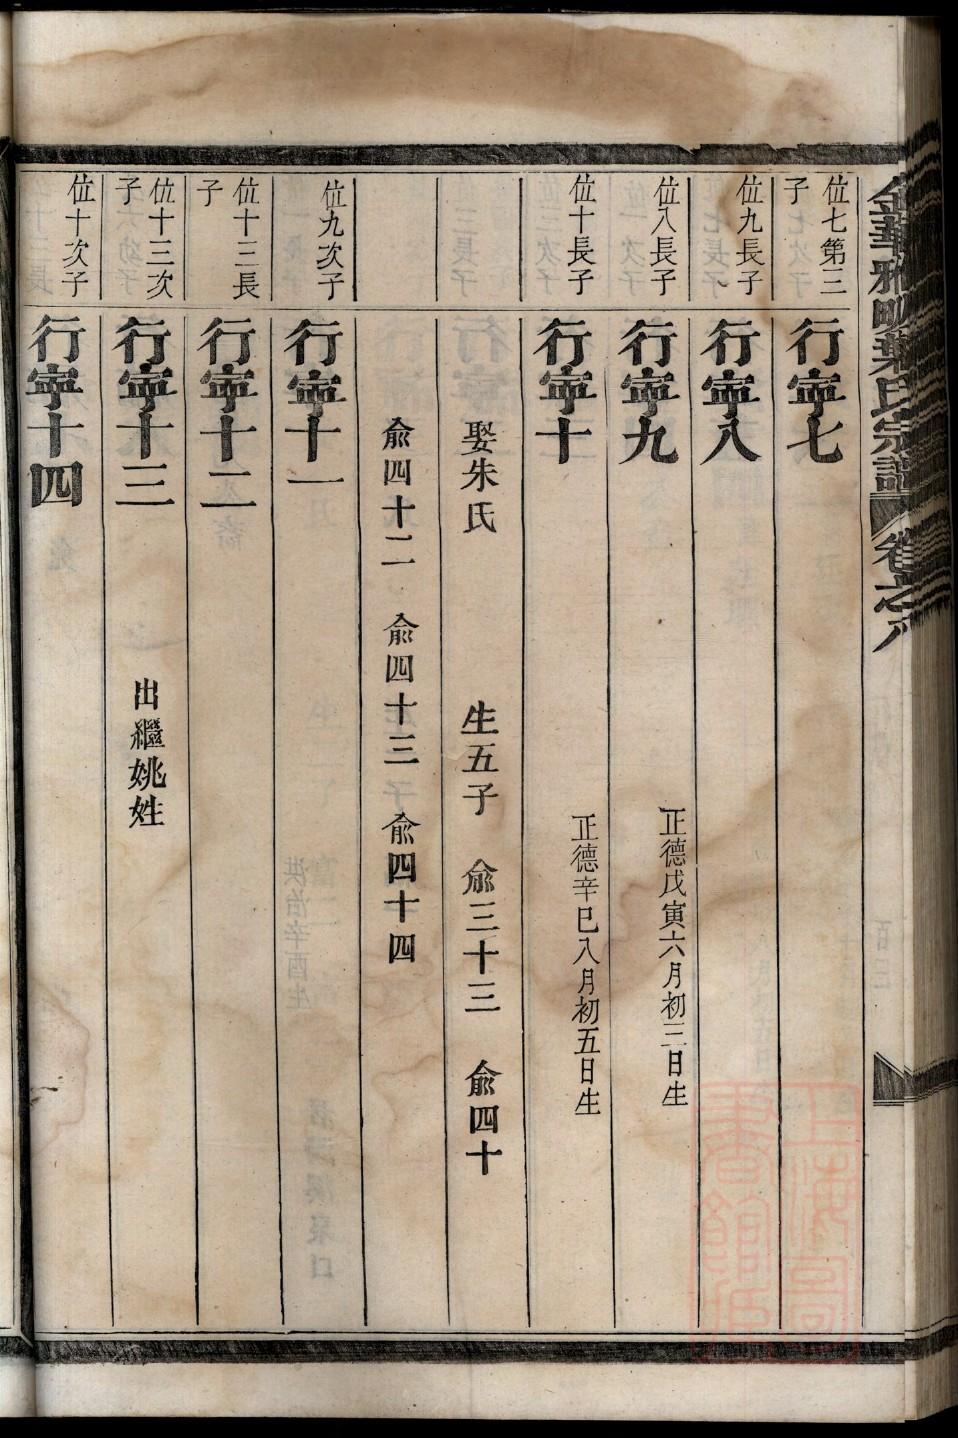 金華雅畈葉氏宗譜 卷之八
位七第三子
行寧七
位九長子
行寧八
位八長子
行寧九
正德戊寅六月初三日生
位十長子
行寧十
正德辛巳八月初五日生
娶朱氏 生五子 俞三十三 俞四十
俞四十二 俞四十三 俞四十四
位九次子
行寧十一
位十三長子
行寧十二
位十三次子
行寧十三
出繼姚姓
位十次子
行寧十四